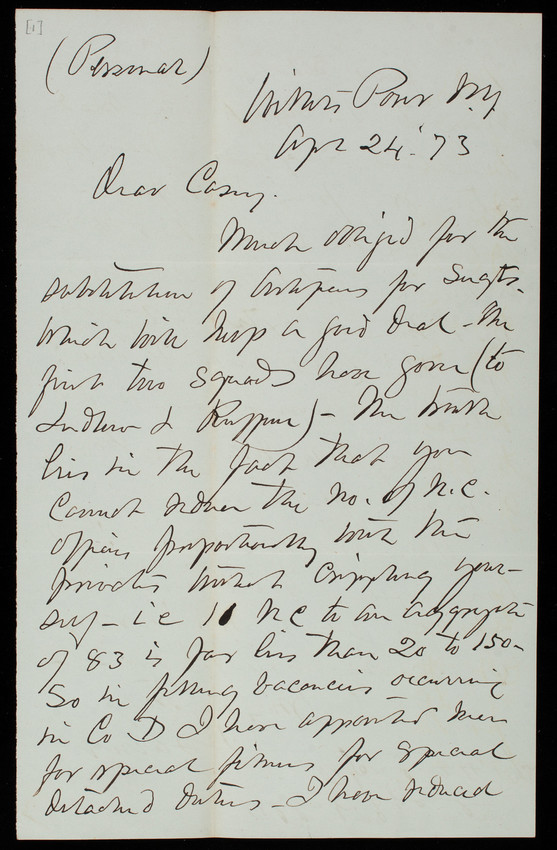 [1]
(Personal)
Willets Point N.Y.
Apr 24. '73
Dear Casey.
Much obliged for the
substitution of Artificers for Sergts.
which will help a good deal - The
first two squads have gone (to
Ludlow & Ruffner) - The truth
lies in the fact that you
cannot reduce the no. of N.C.
officers proportionally with the
privates without crippling your-
self - i e 11 N C to an aggregate
of 83 is far less than 20 to 150-
So in filling vacancies occurring
in Co D I have appointed men
for special fitness for special
detached duties - I have reduced